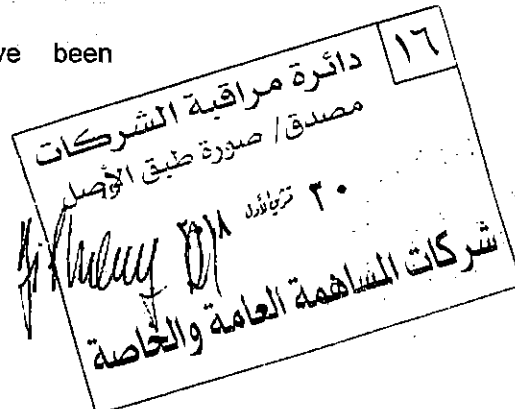 ve been
١٦
دائرة مراقبة الشركات
مصدق / صورة طبق الأصل
٣٠ تشرين الأول ٢٠١٨
شركات المساهمة العامة والخاصة